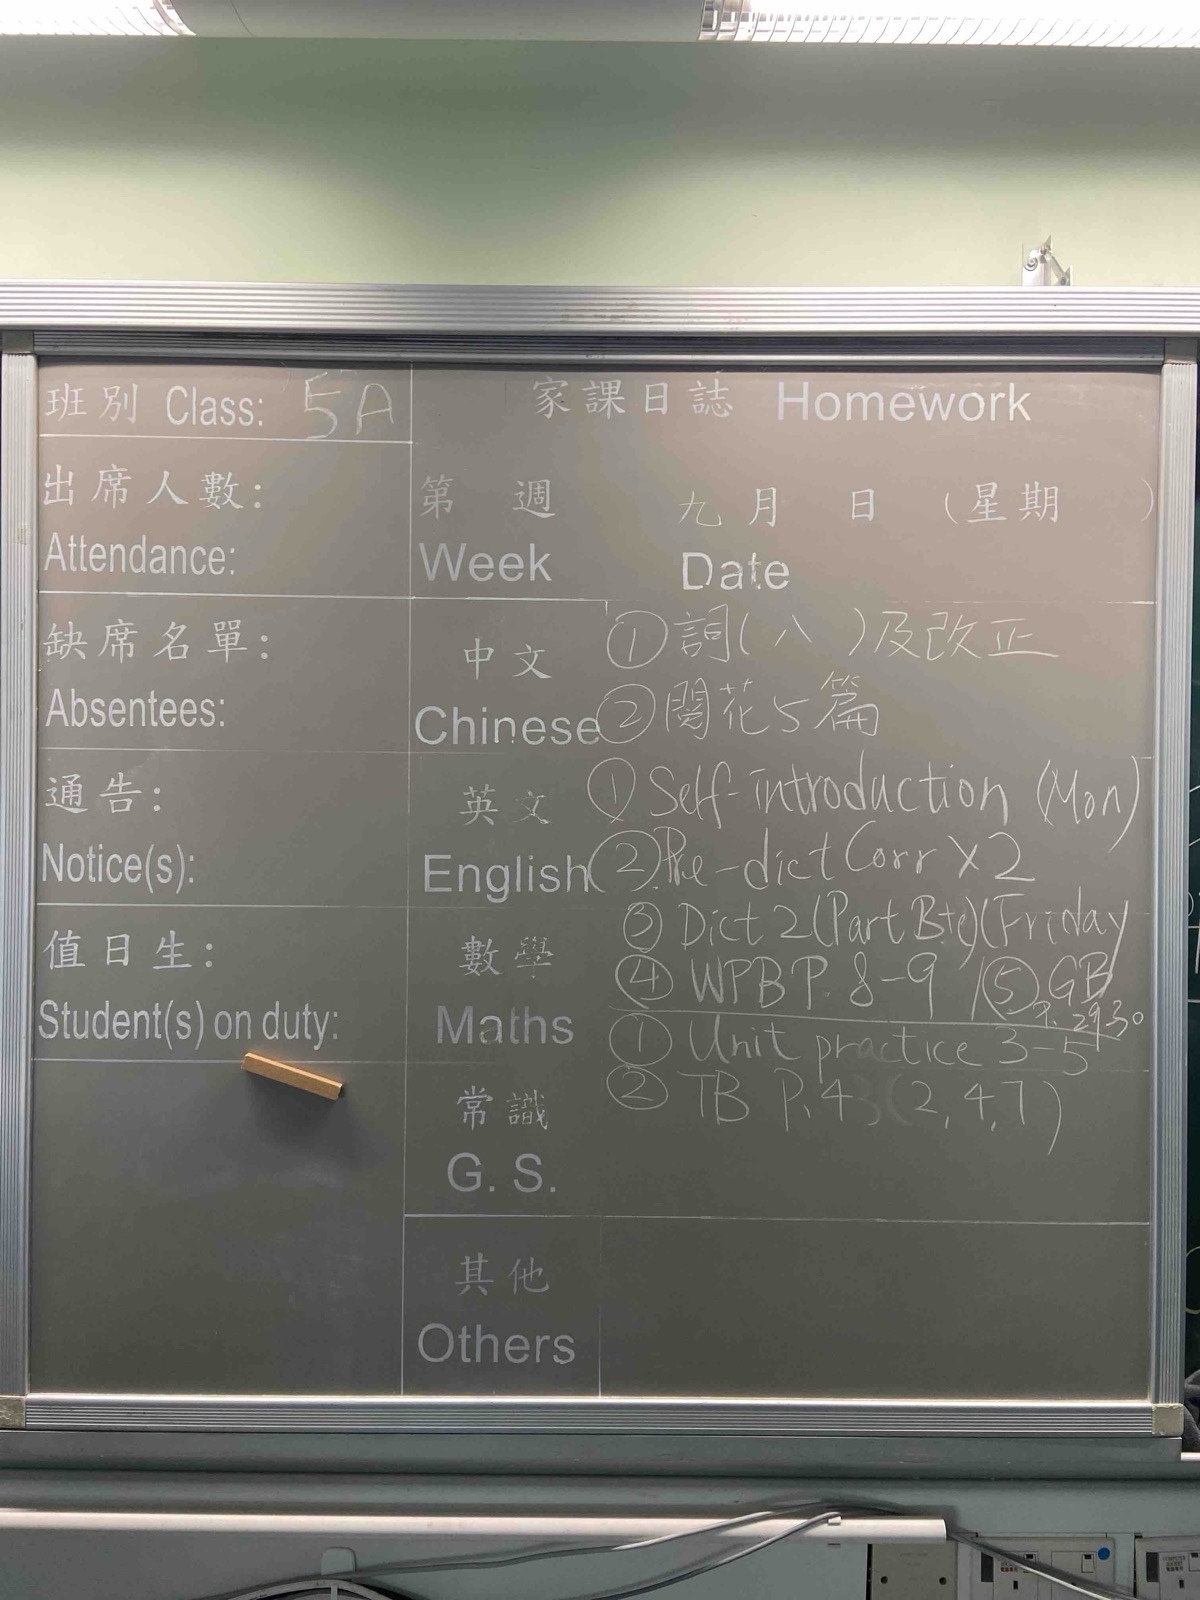 班別 Class: 5A
家課日誌 Homework
出席人數:
Attendance:
第 週 九月 日 (星期 )
Week Date
缺席名單:
Absentees:
中文
Chinese
① 詞(八)及改正
② 閱花5篇
通告:
Notice(s):
英文
English
① Self-introduction (Mon)
② Pre-dict Corr x2
③ Dict 2 (Part B+e) (Friday
④ WPB P. 8-9 / ⑤ GB
P. 29,30
值日生:
Student(s) on duty:
數學
Maths
① Unit practice 3-5
② TB P.43(2,4,7)
常識
G. S.
其他
Others